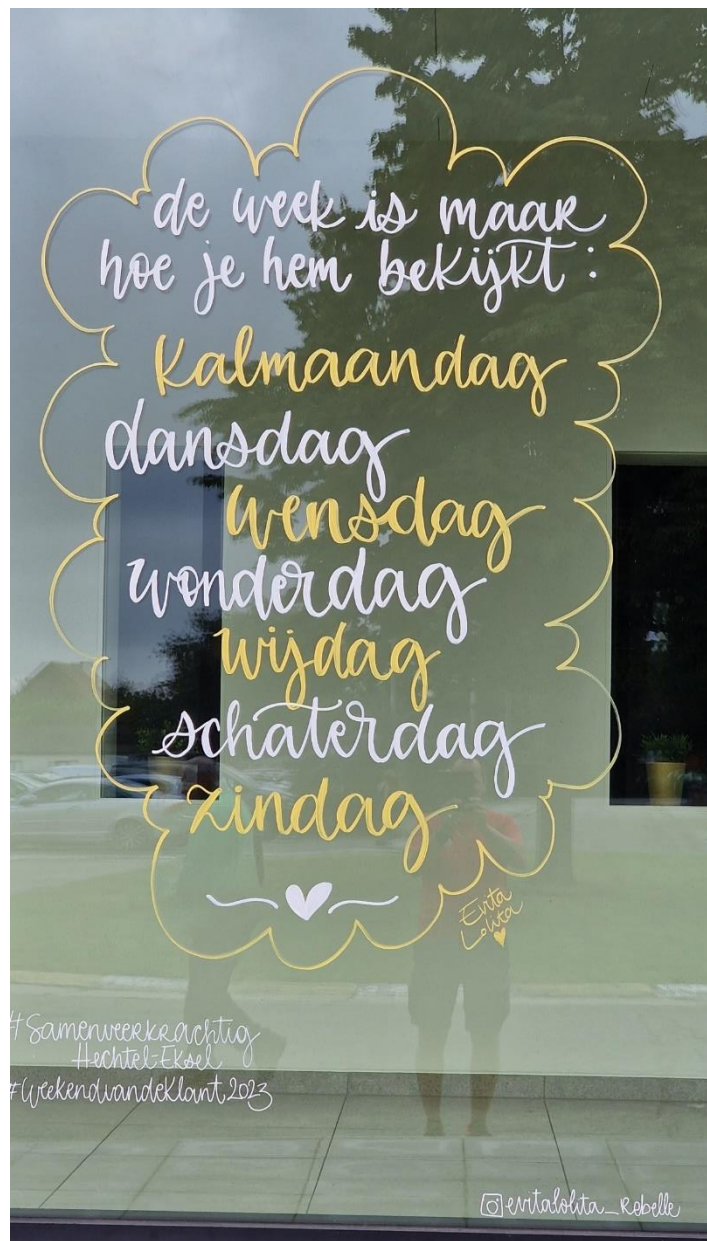 de week is maar
hoe je hem bekijkt:
Kalmaandag
dansdag
wensdag
wonderdag
wijdag
schaterdag
zindag
Evita
Lolita
#Samenveerkrachtig
Hechtel-Eksel
#WeekendvandeKlant2023
evitalolita_Rebelle